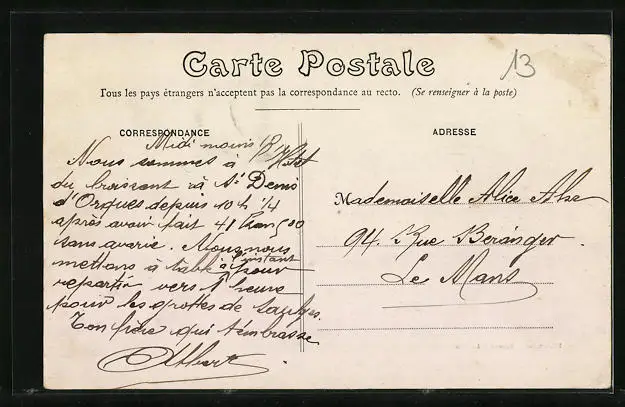 Carte Postale
13
Tous les pays étrangers n'acceptent pas la correspondance au recto. (Se renseigner à la poste)
CORRESPONDANCE
ADRESSE
Midi moins
Nous sommes à
du croissant à St Denis
d'Orques depuis 10 h 1/4
après avoir fait 41
sans avarie. Nous nous
mettons à table à l'instant pour
repartir vers 1 heure
pour les grottes de Saulges.
Ton frère qui t'embrasse
Albert
Mademoiselle Alice
94 Rue Béranger.
Le Mans